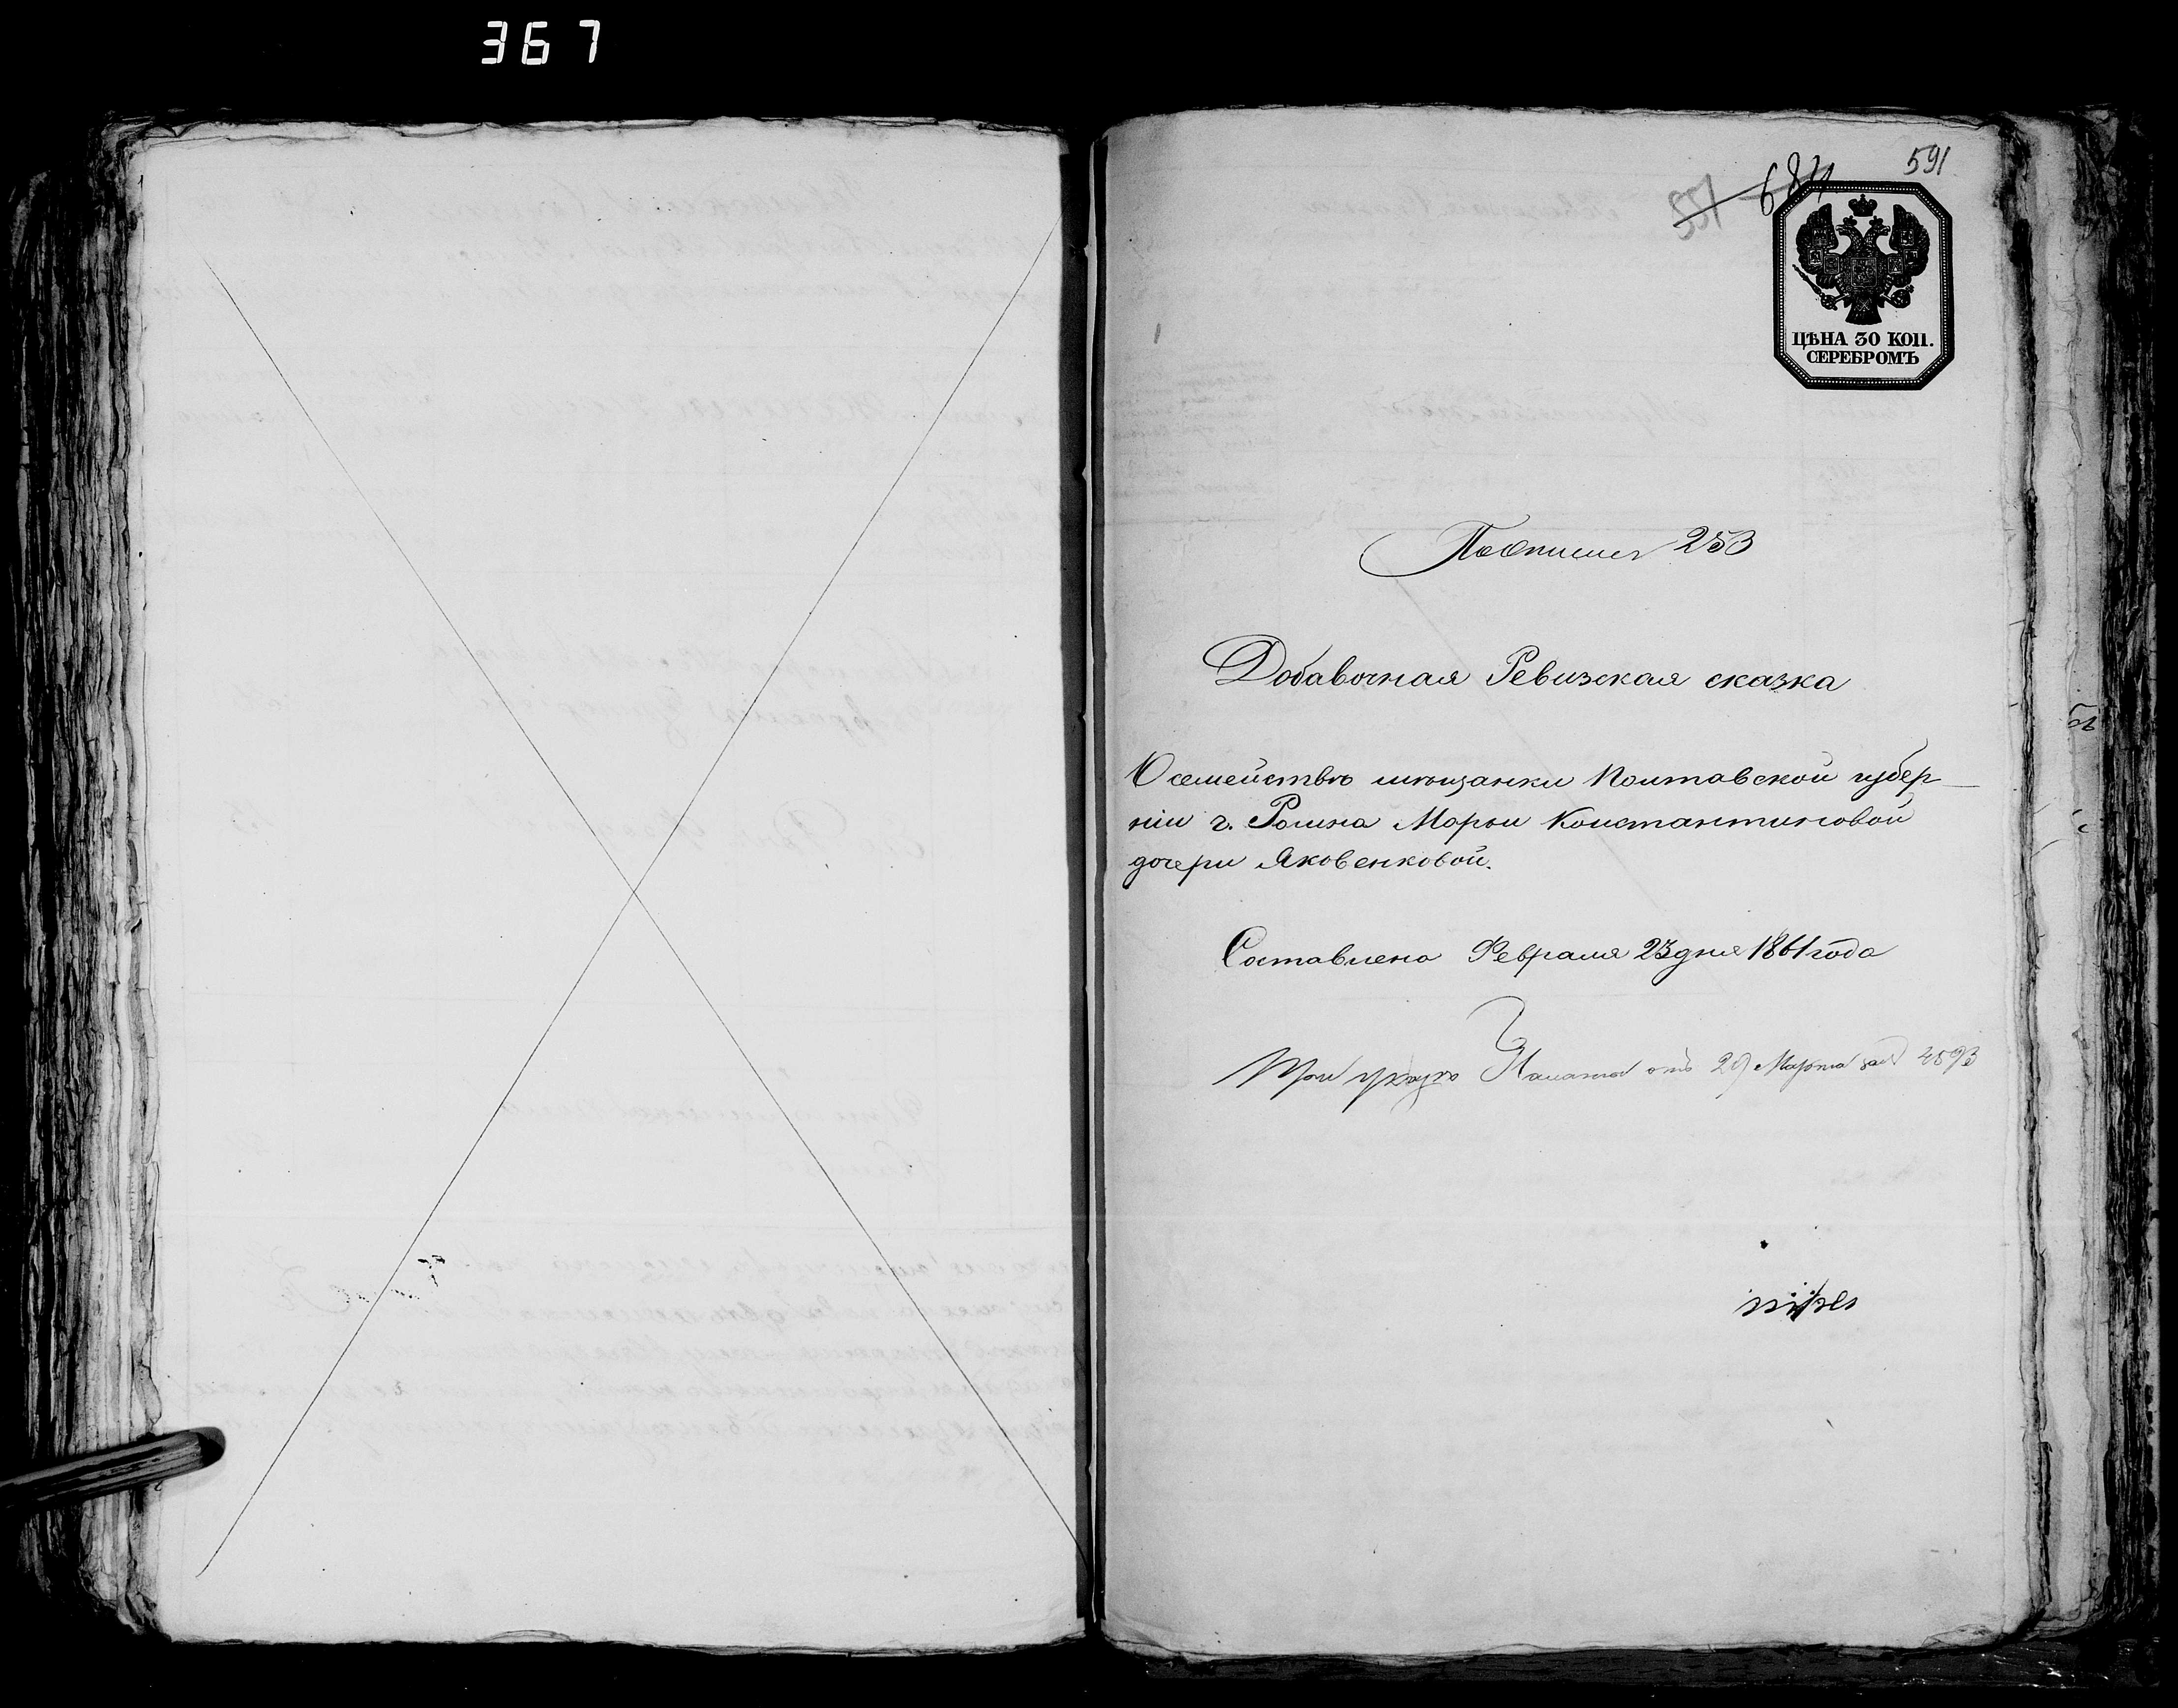 367
591
551 684
ЦѢНА 30 КОП.
СЕРЕБРОМЪ
По описи 253
Добавочная Ревизская сказка
О семействѣ мѣщанки Полтавской губер
ніи г. Ромна Марьи Константиновой
дочери Яковенковой.
Составлена Февраля 23 дня 1861 года
При указѣ Палаты отъ 29 Марта за № 4593